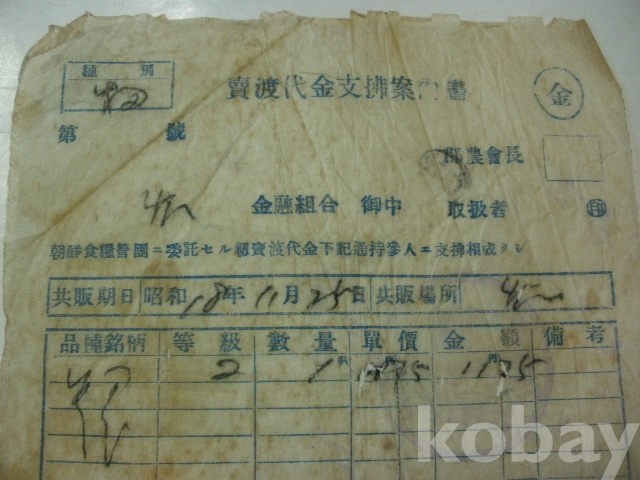 種別
賣渡代金支拂案內書
金
第 號
郡農會長
金融組合 御中
取扱者 印
朝鮮食糧營團ニ委託セル籾賣渡代金下記通持參人ニ支拂相成タシ
共販期日 昭和18年11月25日 共販場所
品種銘柄 等級 數量 單價 金額 備考
2 1 1175 1175
kobay